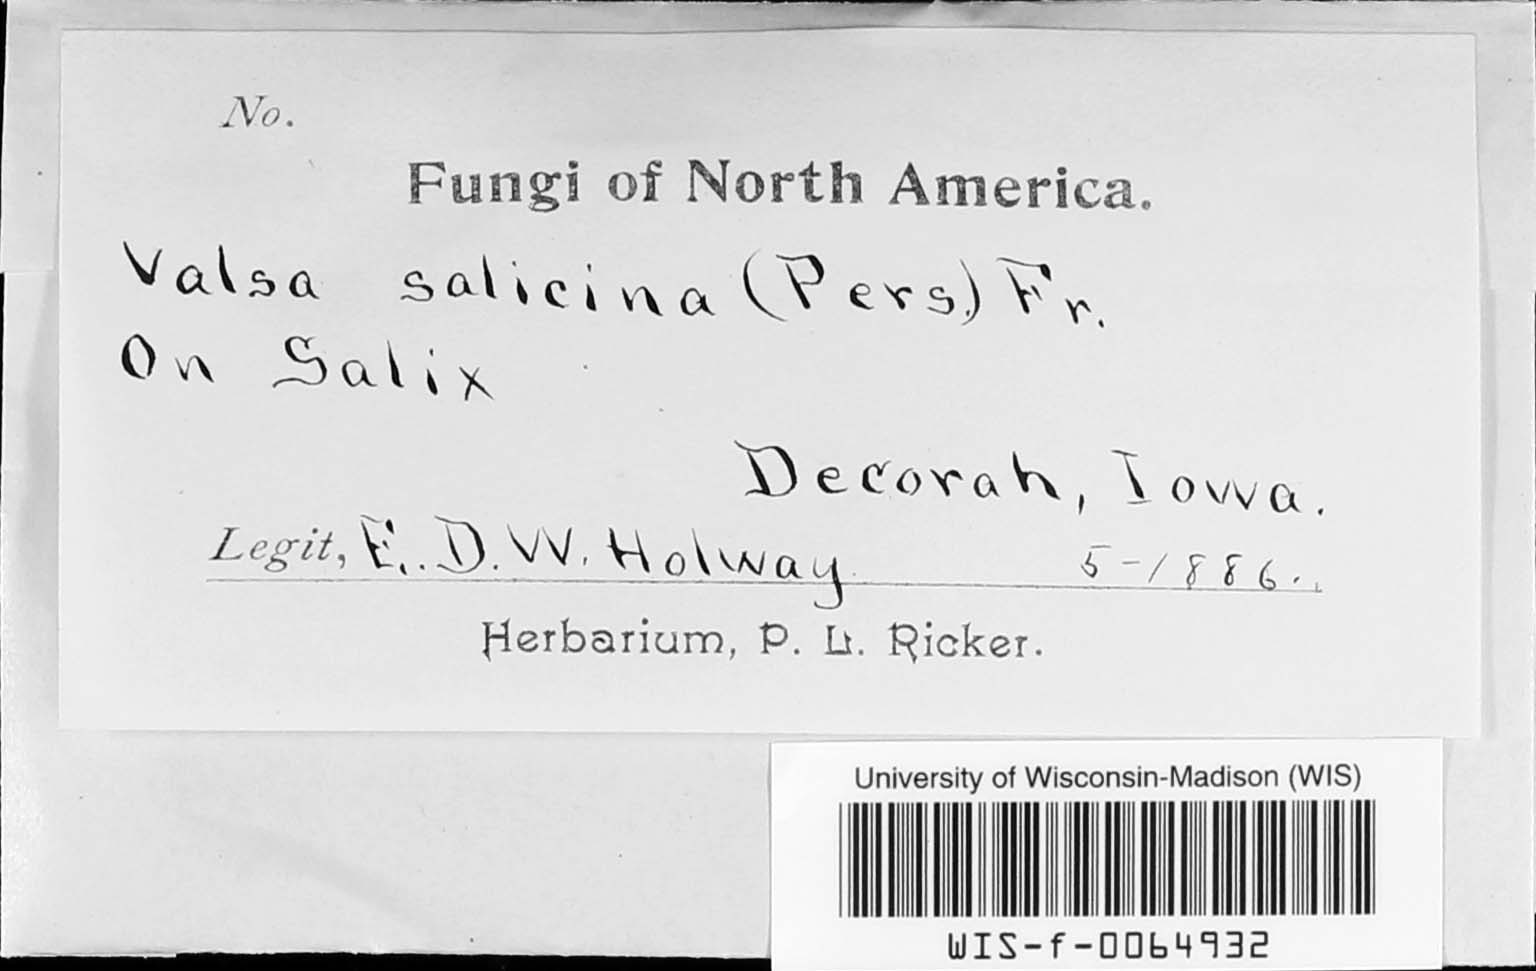 No.
Fungi of North America.
Valsa salicina (Pers.) Fr.
On Salix
Decorah, Iowa.
Legit, E. D. W. Holway 5-1886.
Herbarium, P. L. Ricker.
University of Wisconsin-Madison (WIS)
WIS-f-0064932